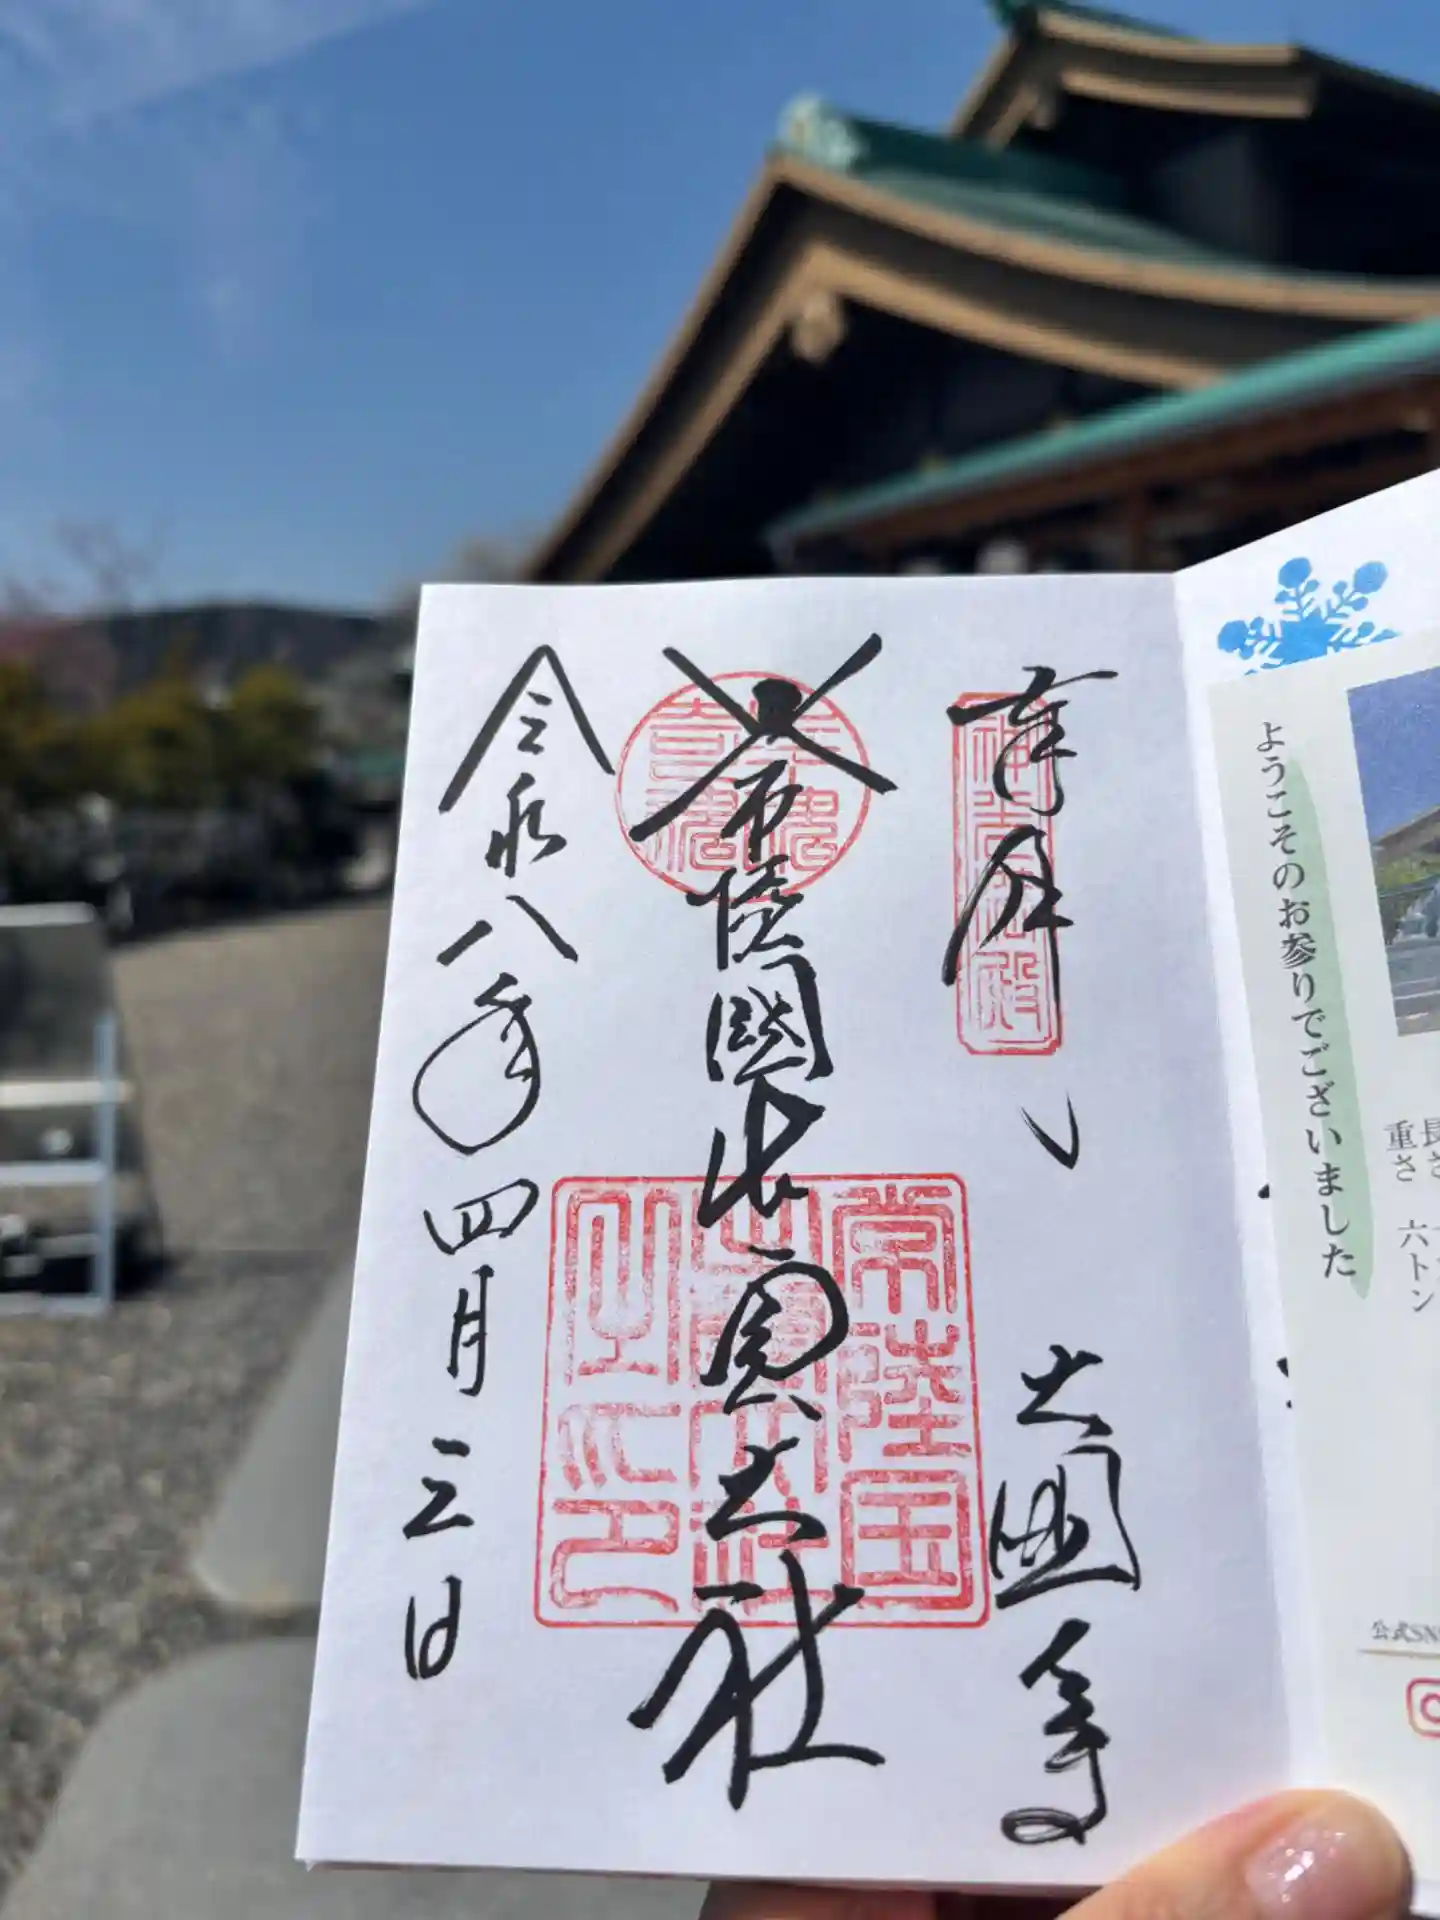 長さ
重さ 六トン
公式SN
ようこそのお参りでございました
奉拝
常陸國出雲大社
常陸国
出雲大社
之印
令和八年四月三日